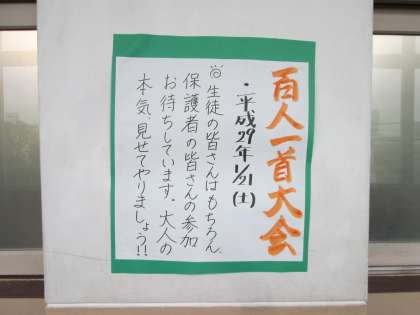 百人一首大会
・平成29年1/21(土)
◎生徒の皆さんはもちろん、
保護者の皆さんの参加
お待ちしています。大人の
本気、見せてやりましょう!!